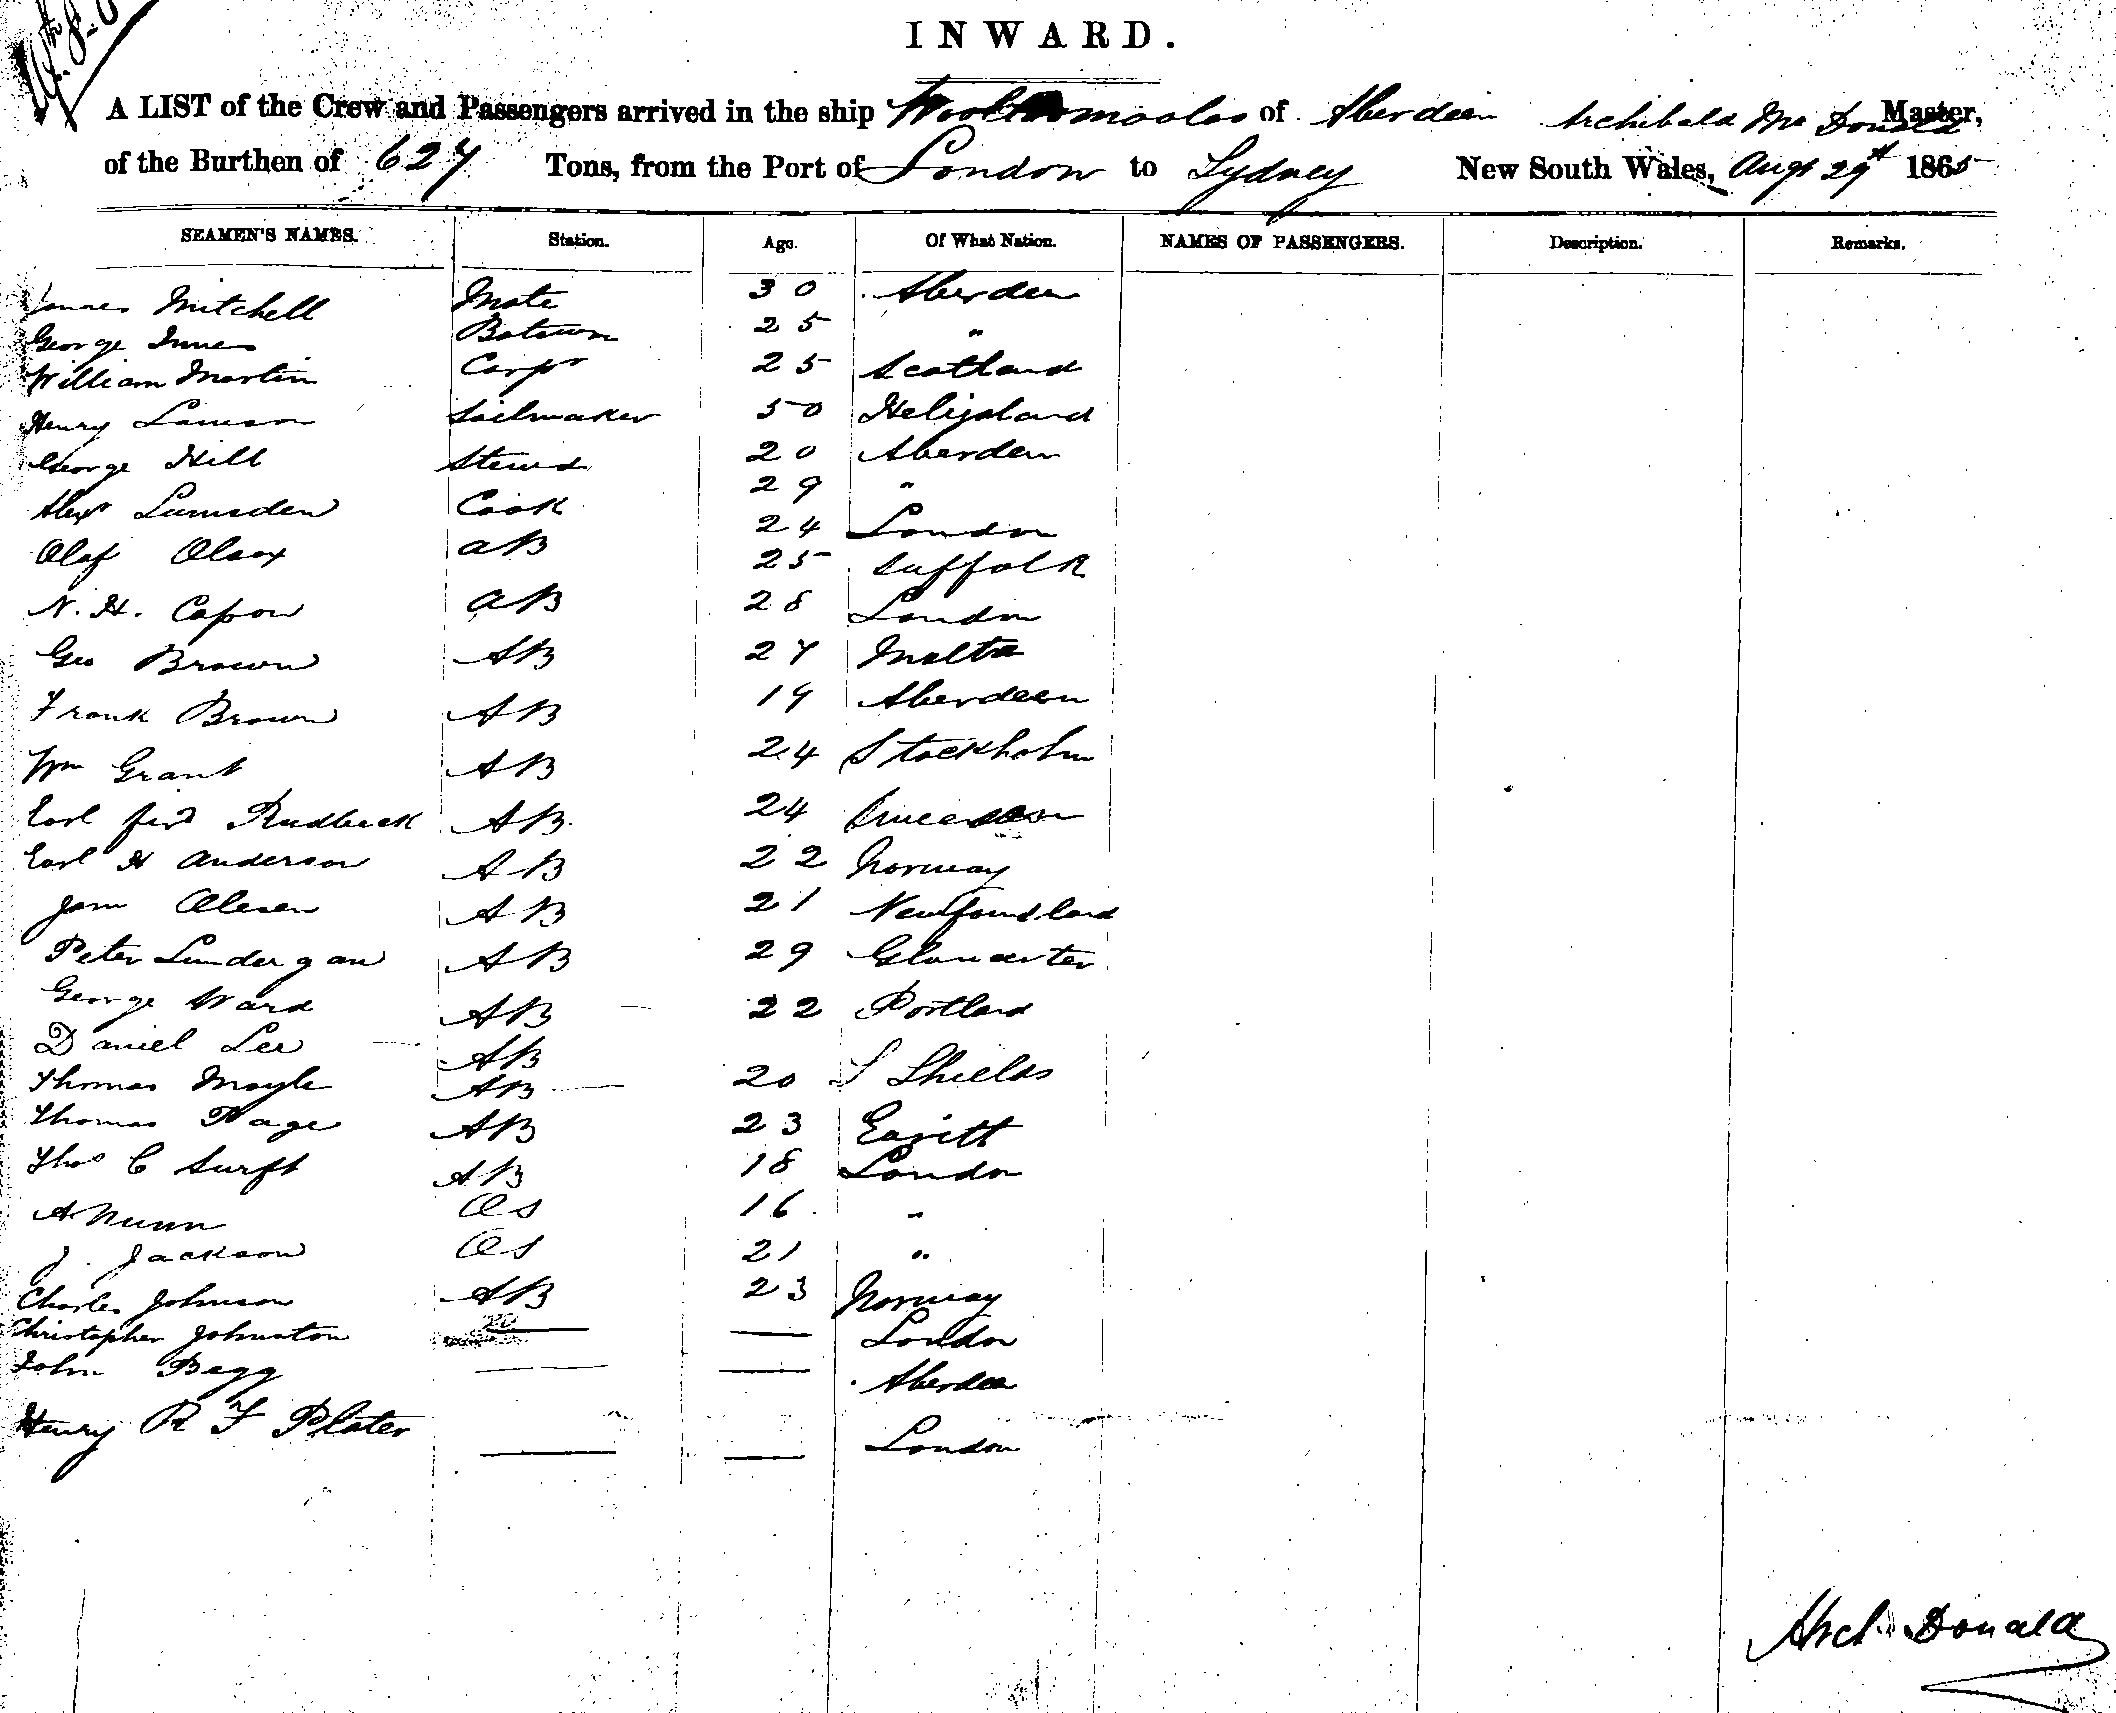 INWARD.
A LIST of the Crew and Passengers arrived in the ship of Aberdeen Archibald Mc Donald Master,
of the Burthen of 627 Tons, from the Port of London to Sydney New South Wales, Augt 29th 1865
SEAMEN'S NAMES. Station. Age. Of What Nation. NAMES OF PASSENGERS. Description. Remarks.
James Mitchell Mate 30 Aberdeen
George Innes Botswn 25 "
William Martin Carpr 25 Scotland
Henry Lawson Sailmaker 50 Heligoland
George Hill Stewd 20 Aberdeen
Alexr Lumsden Cook 29 "
Olaf AB 24 London
N. H. Capon AB 25 Suffolk
Geo Brown AB 28 London
Frank Brown AB 27 Malta
Wm Grant AB 19 Aberdeen
Earl Rudbeck AB 24 Stockholm
Earl H Anderson AB 24
Olesen AB 22 Norway
Peter Lundergan AB 21 Newfoundland
George Ward AB 29 Gloucester
Daniel Lee AB 22 Portland
Thomas Moyle AB 20 S Shields
Thomas Page AB 23
Thos C Surft AB 18 London
A Nunn OS 16 "
J. Jackson OS 21 "
Charles Johnson AB 23 Norway
Christopher Johnston — — London
John Begg — — Aberdeen
Henry R F Plater — — London
Arch Donald